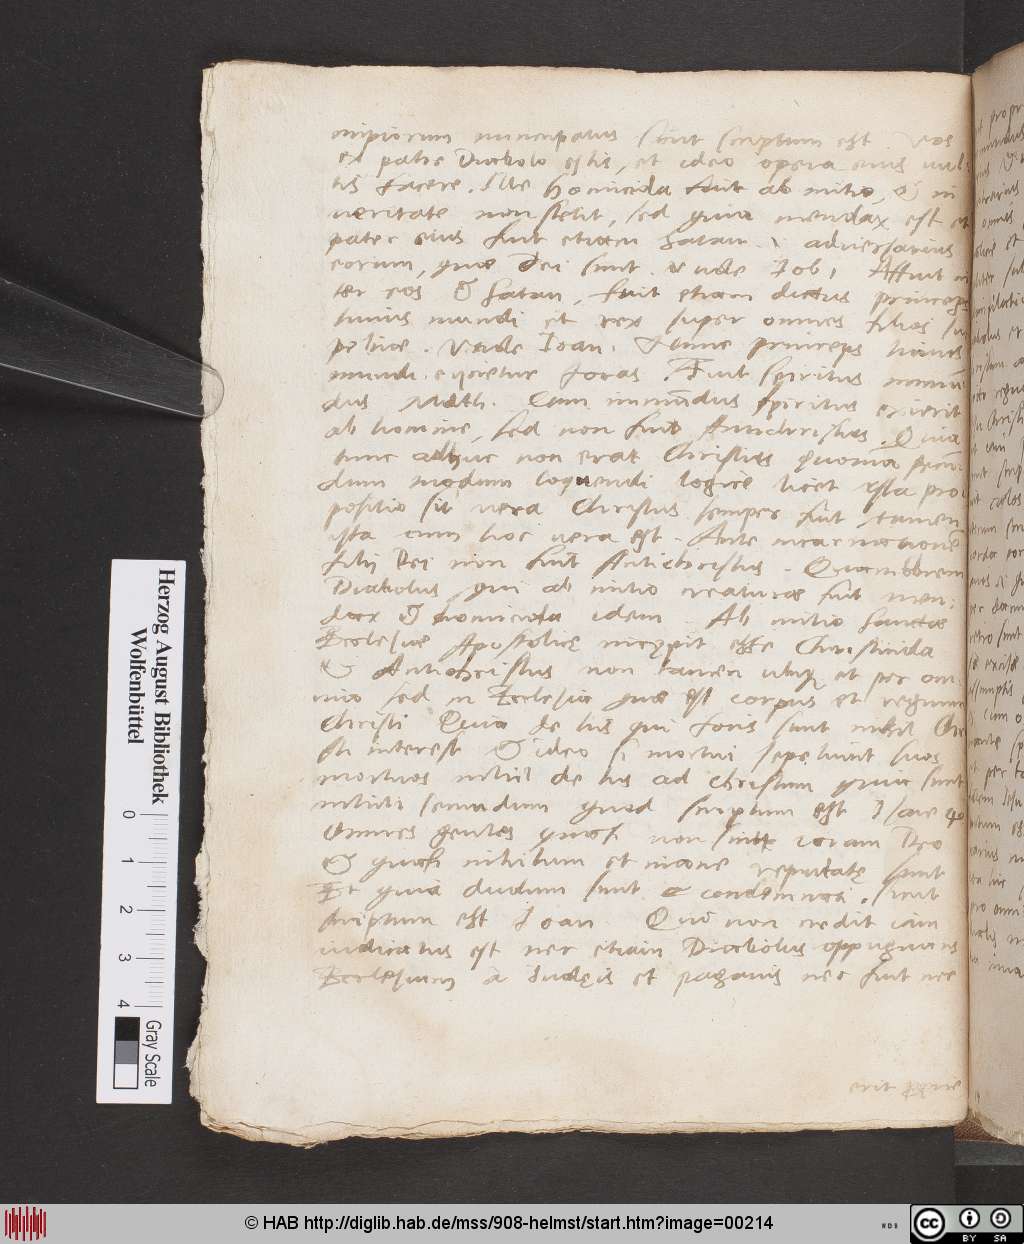 impiorum nuncupatus sicut scriptum est Vos
ex patre Diabolo estis, et ideo opera eius vul
tis facere. Ille homicida fuit ab initio, & in
veritate non stetit, sed quia mendax est et
pater eius fuit etiam Satan .i. adversarius
eorum, quae Dei sunt. Vnde Iob 1 Affuit in
ter eos & Satan, fuit etiam dictus princeps
huius mundi et rex super omnes filios su
perbiae. Vnde Ioan. Nunc princeps huius
mundi eijcietur foras. Fuit spiritus immun
dus Math. Cum immūdus spiritus exierit
ab homine, sed non fuit Antichristus. Quia
tunc adhuc non erat Christus Quoniā secun
dum modum loquendi logice licet ista pro
positio sit vera Christus semper fuit tamen
ista cum hoc vera est. Ante incarnationē
filij Dei non fuit Antichristus. Quamobrem
Diabolus, qui ab initio creaturae fuit men
dax & homicida idem Ab initio Sanctae
Ecclesiae Apostolicę incępit esse Christicida
& Antichristus non tamen ubiq et per om
nia sed in Ecclesia quae est corpus et regnum
Christi Quia de his qui foris sunt nihil Chri
sti interest & ideo si mortui sepeliunt suos
mortuos nihil de his ad Christum quia sunt
nihili secundum quod scriptum est Isaie 40
Omnes gentes quasi non sint coram Deo
& quasi nihilum et inane reputatę sunt
Et quia dudum sunt condemnati. sicut
scriptum est Ioan. Qui non credit iam
iudicatus est nec etiam Diabolus oppugnans
Ecclesiam a Iudęis et paganis nec fuit nec
erit
Herzog August Bibliothek
Wolfenbüttel
0 1 2 3 4
Gray Scale
© HAB http://diglib.hab.de/mss/908-helmst/start.htm?image=00214
WDB
cc BY SA